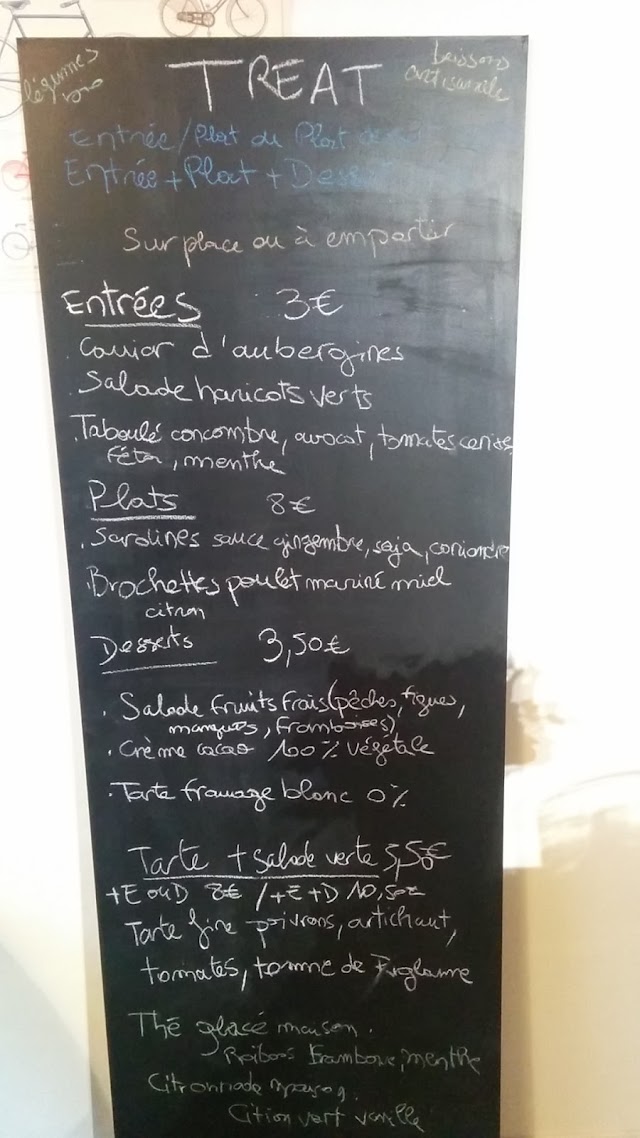 légumes
bio
TREAT
boissons
artisanale
Entrée/Plat ou Plat
Entrée + Plat + Dessert
Sur place ou à emporter
Entrées 3€
. Caviar d'aubergines
. Salade haricots verts
. Taboulé concombre, avocat, tomates cerises,
féta, menthe
Plats 8€
. Sardines sauce gingembre, soja, coriandre
. Brochettes poulet mariné miel
citron
Desserts 3,50€
. Salade fruits frais (pêches, figues,
mangues, framboises)
. Crème cacao 100% végétale
. Tarte fromage blanc 0%
Tarte + salade verte 5,50€
+E ou D 8€ / +E+D 10,50€
Tarte fine poivrons, artichaut,
tomates, tomme de
Thé glacé maison.
Roibos Framboise, menthe
Citronnade maison.
Citron vert vanille